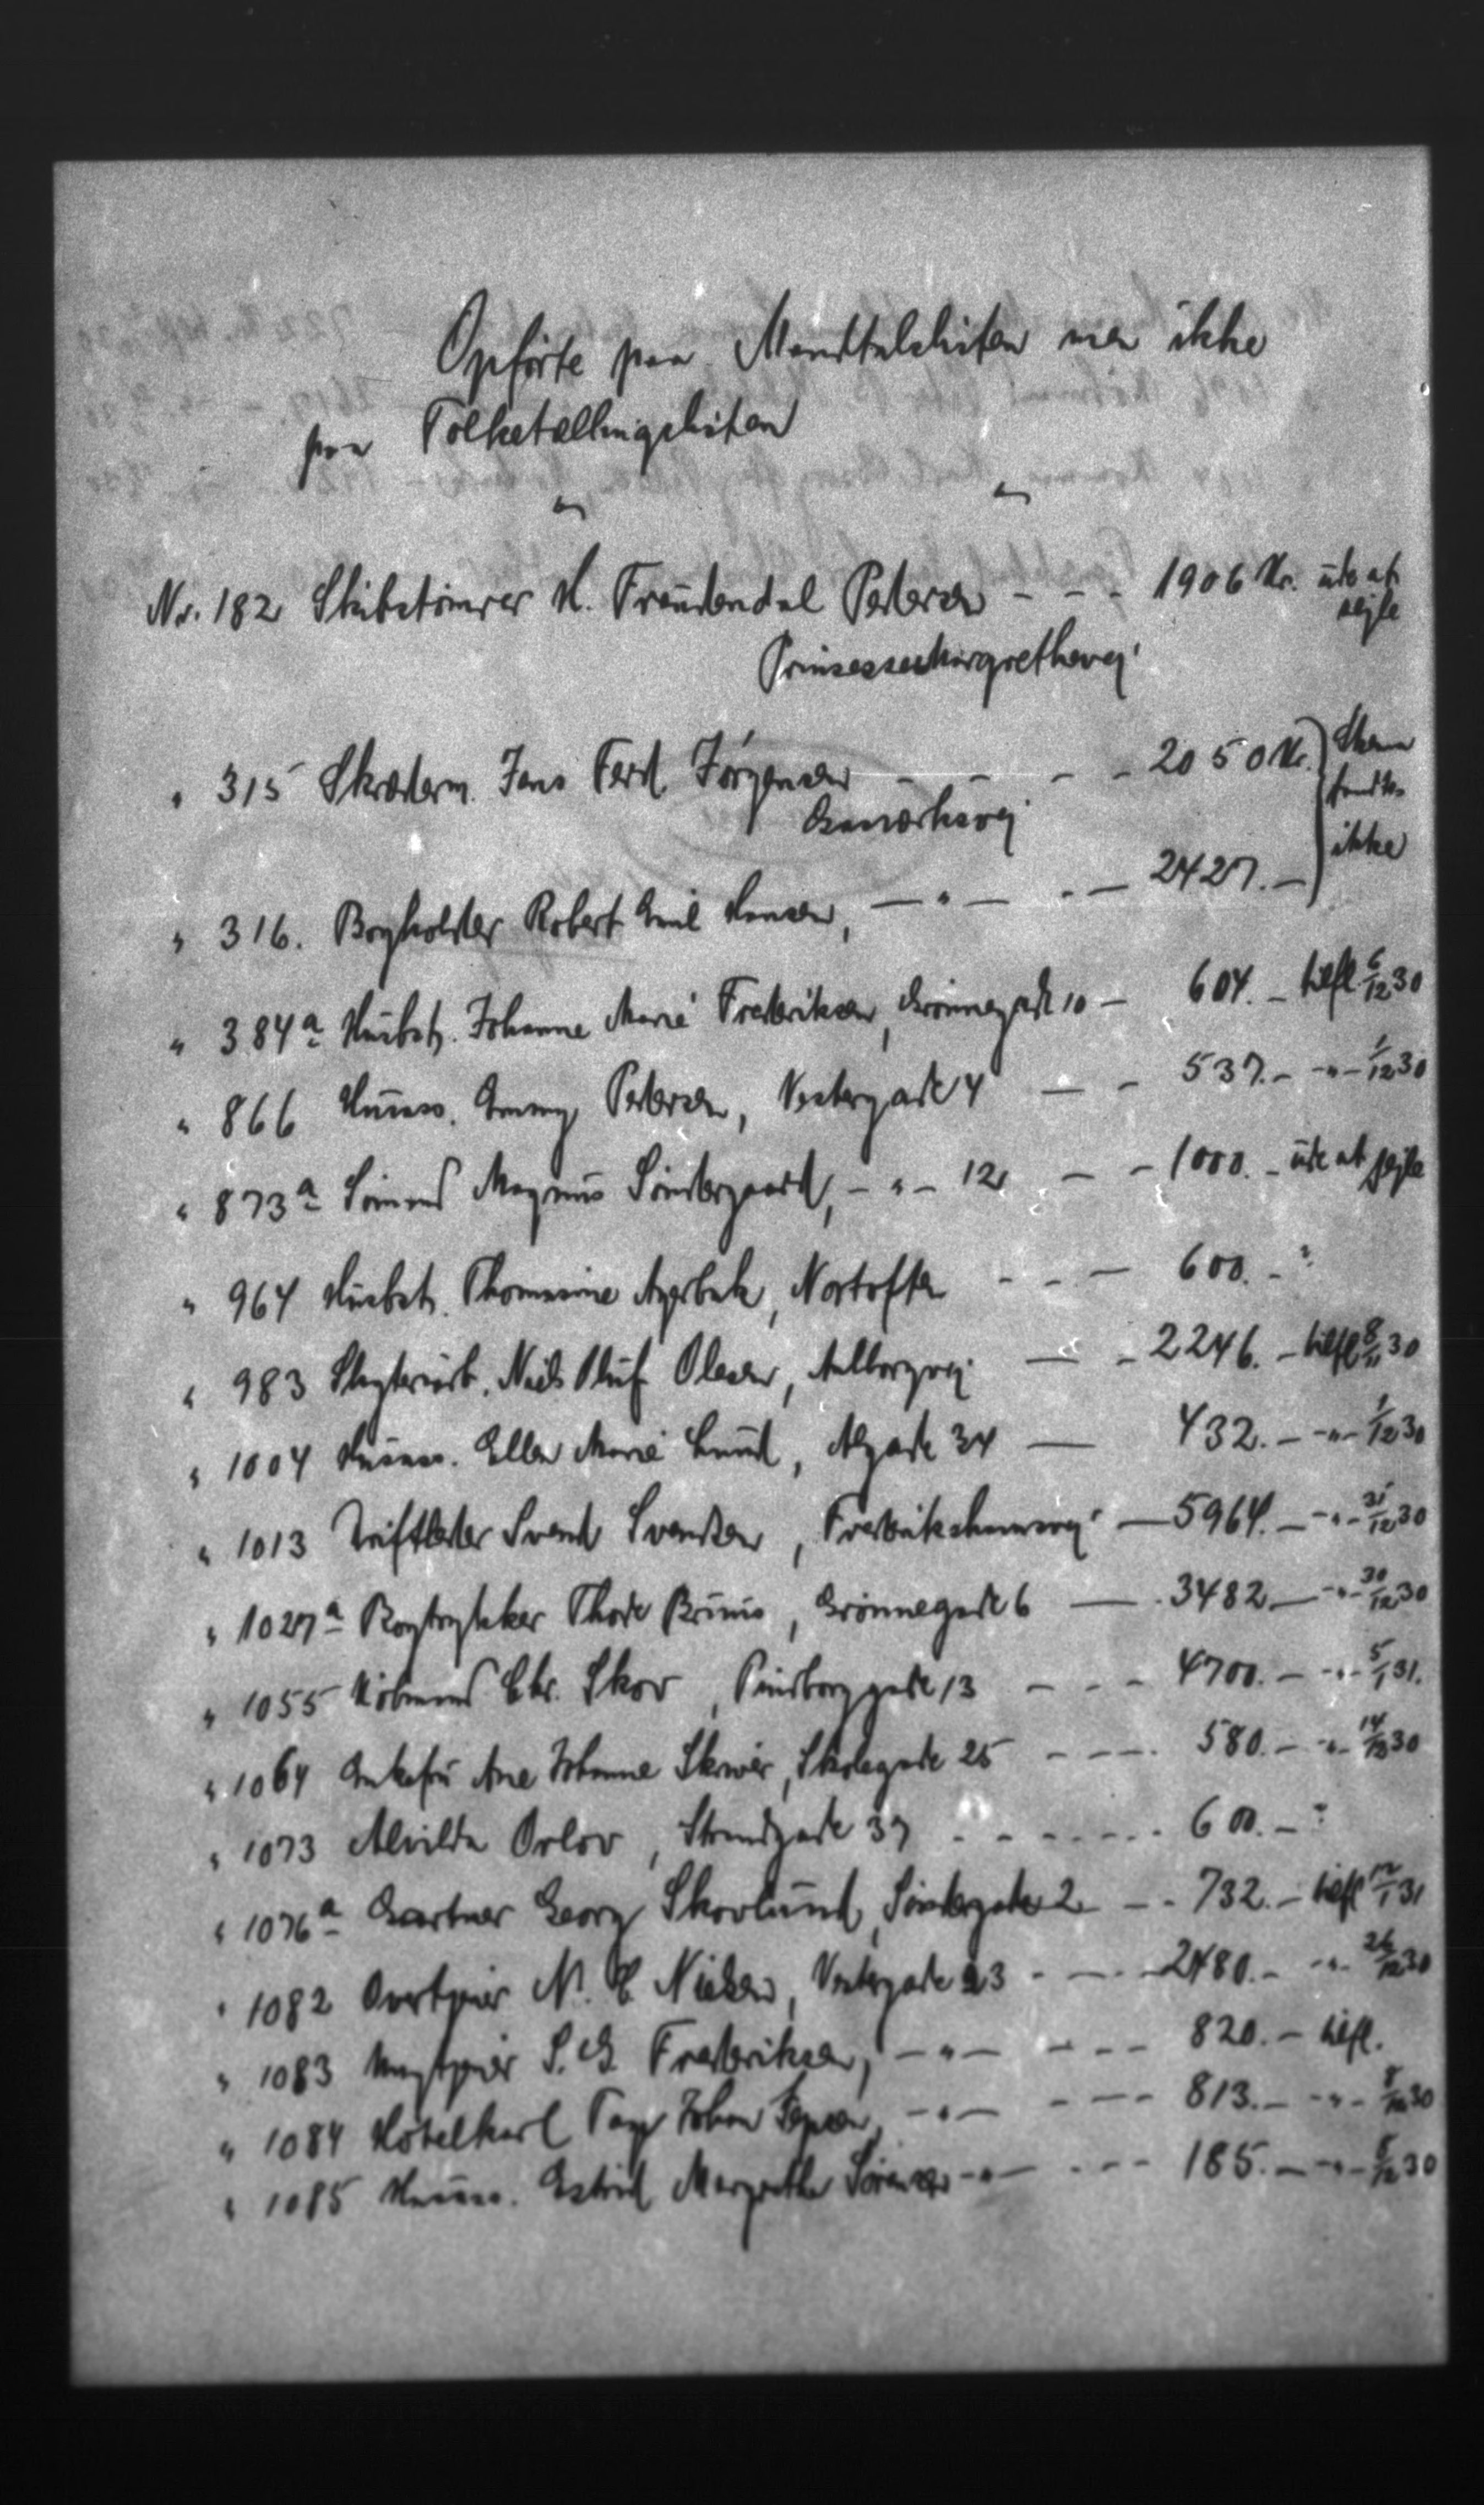 Opførte paa Mandtalslisten men ikke
paa Folketællingslisten
No. 182 Skibstømrer H. Freudendal Pedersen - - - 1906 Kr. ude at
sejle
Prinsessemargrethevej
" 315 Skræderm. Jens Ferd. Jørgensen - - - - 2050 Kr. } Skema
fandtes
Danmarksvej
ikke
" 316. Bogholder Robert Emil Hansen, — " — - — 2427. —
" 384a Husbst. Johanne Marie Frederiksen, Grønnegade 10 — 604. — tilfl. 6/12 30
" 866 Husass. Emmy Pedersen, Vestergade 4 — - 537. — - " - 1/12 30
" 873a Sømand Magnus Søndergaard, - " - 12 — - 1000. - ude at sejle
" 964 Husbst. Thomasine Agerbæk, Nortoften - - — 600. - ?
" 983 Slagteriarb. Niels Oluf Olesen, Aalborgvej — - 2246. - tilfl. 8/11 30
" 1004 Husass. Ellen Marie Lund, Algade 34 — 432. — - " - 1/12 30
" 1013 Driftleder Svend Svendsen, Frederikshavnsvej — 5964. — - " - 31/12 30
" 1027a Bogtrykker Thode Bruus, Grønnegade 6 — 3482 — - " - 30/12 30
" 1055 Købmand Chr. Skov, Pindborggade 13 - - - 4700. — - " - 5/1 31.
" 1064 Enkefru Ane Johanne Skriver, Skolegade 25 - - - - 580. — - " - 14/12 30
" 1073 Alvilda Orlov, Strandgade 39 - - - - - - 600. — ?
" 1076a Gartner Georg Skovlund, Søndergade 2 - - 732. — tilfl. 12/1 31
" 1082 Overtjener N. C. Nielsen, Vestergade 23 - — - 2480. - - " - 26/12 30
" 1083 S. G. Frederiksen, — " — - - - 820. — tilfl.
" 1084 Hotelkarl Tage Johan Jepsen, — " — - - - 813. — - " - 8/12 30
" 1085 Husass. Estrid Margrethe Sørensen — " — - - - 185. — - " - 8/12 30